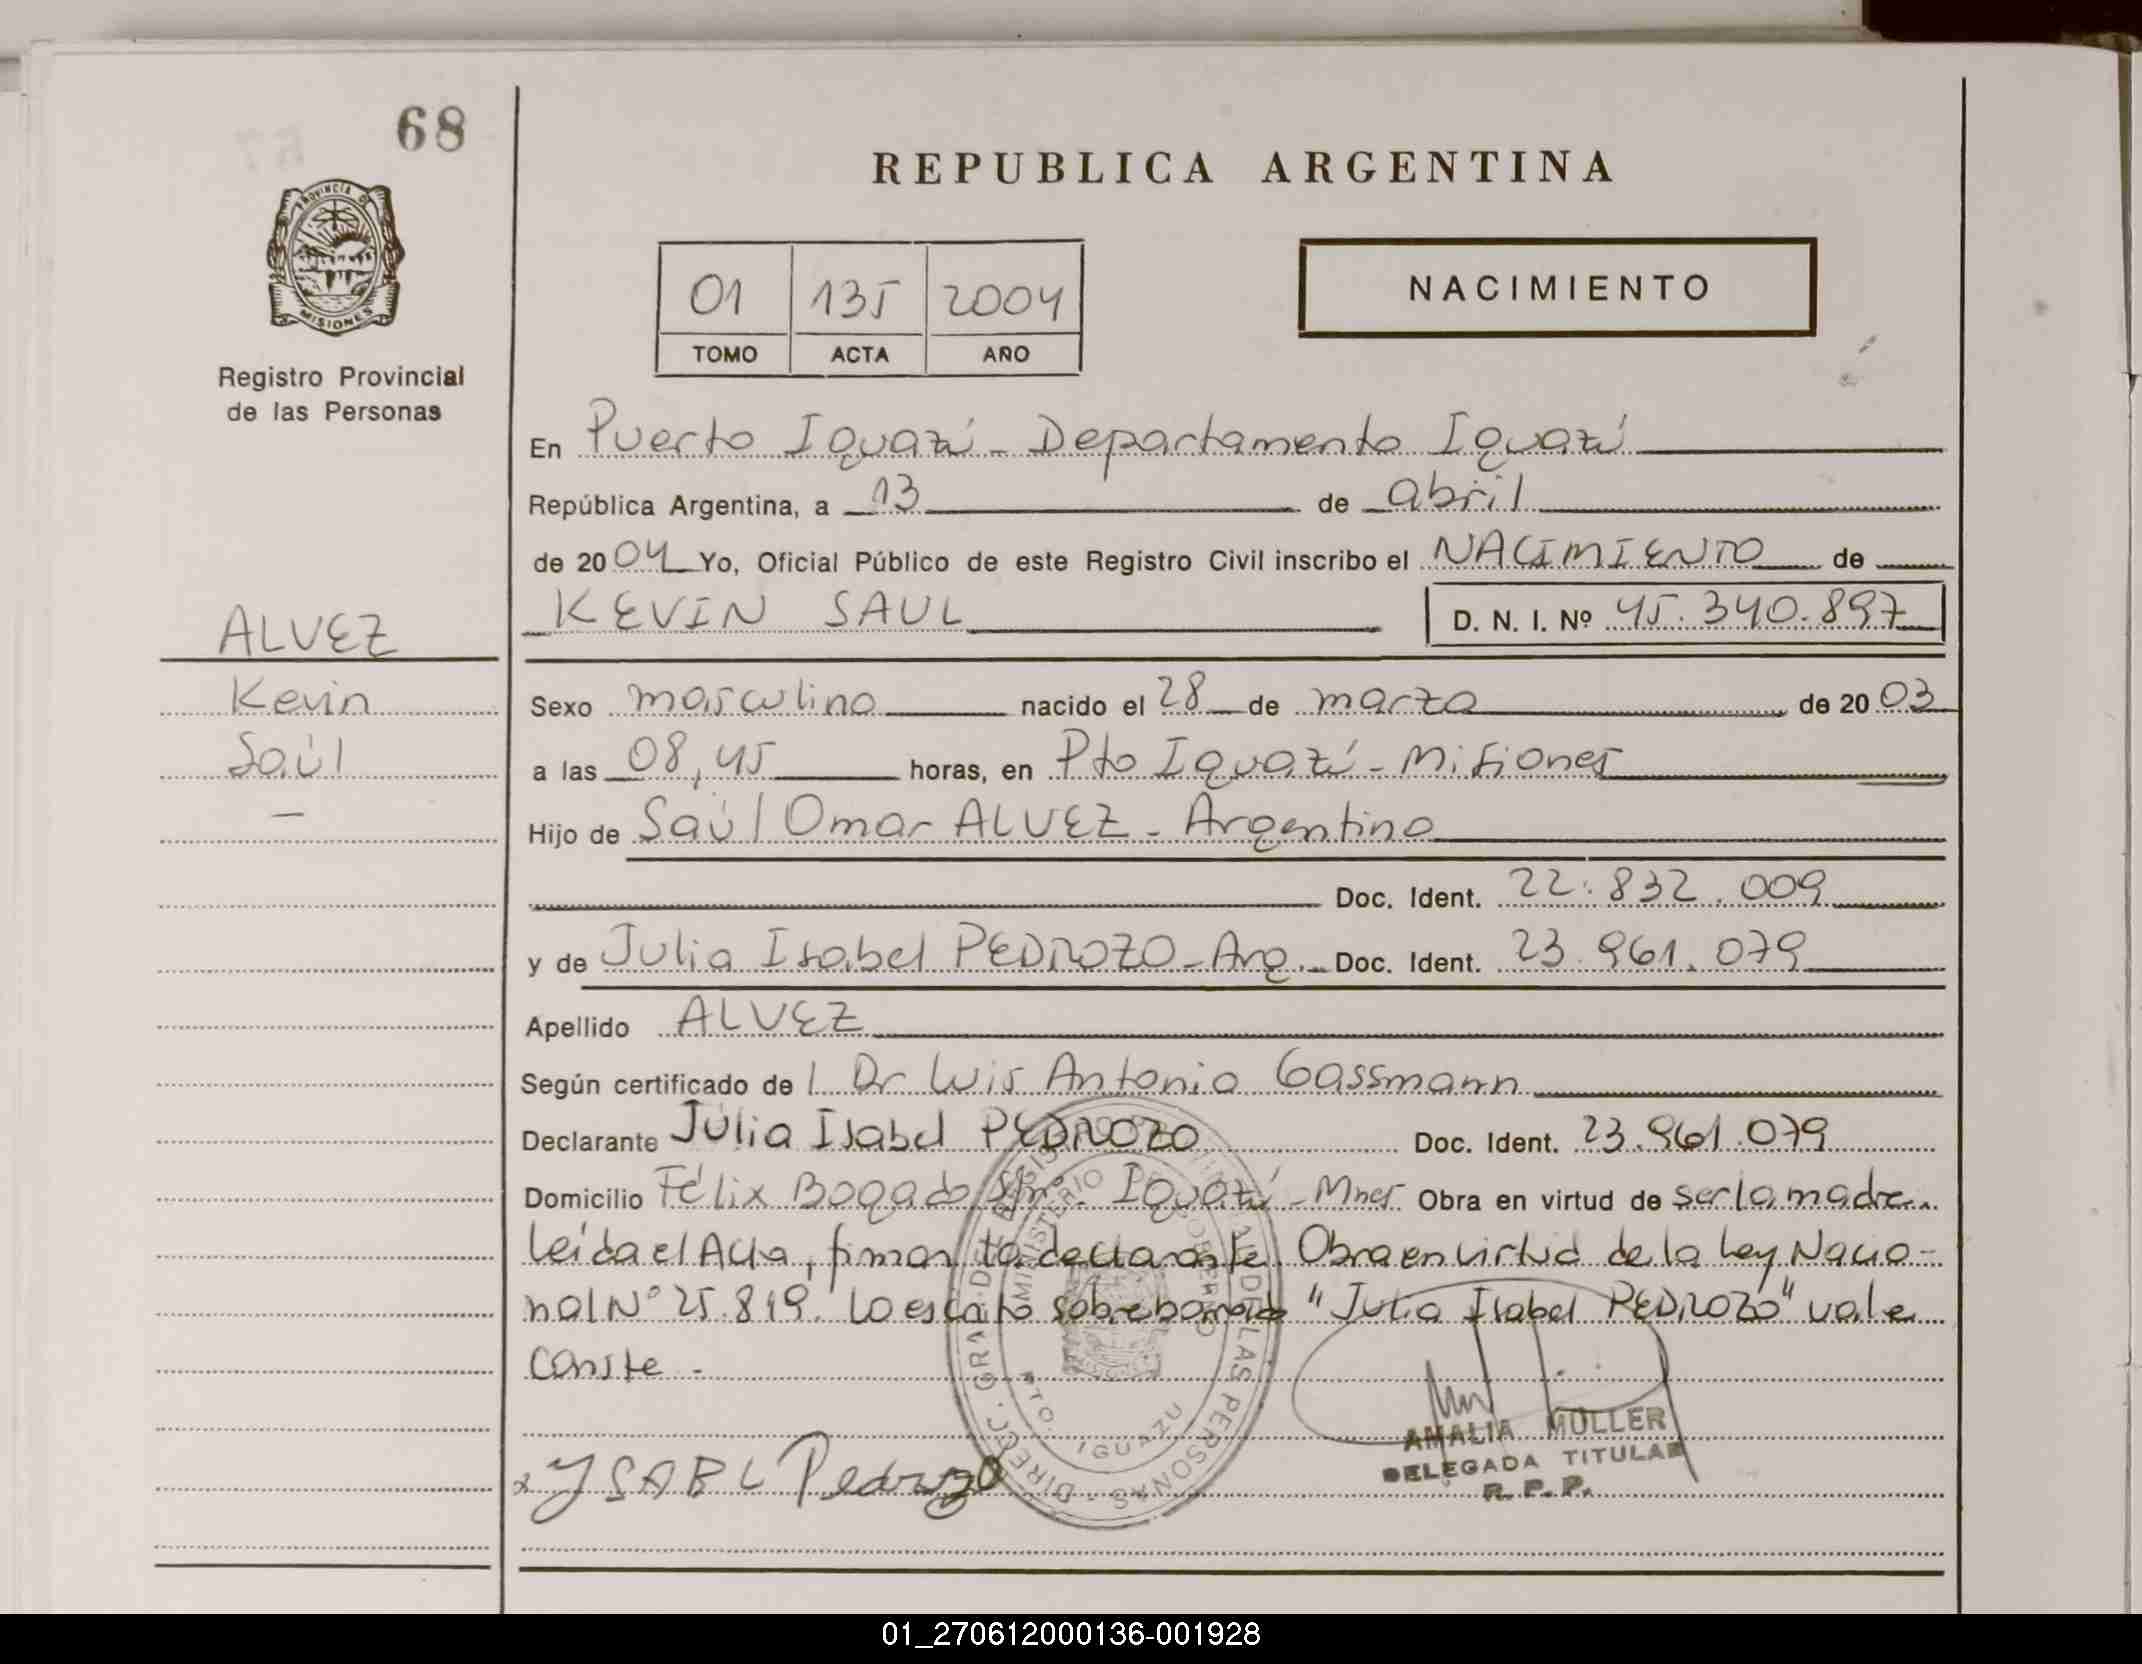 68
REPUBLICA ARGENTINA
PROVINCIA DE
MISIONES
01 135 2004
TOMO ACTA AÑO
NACIMIENTO
Registro Provincial
de las Personas
En Puerto Iguazú - Departamento Iguazú
República Argentina, a 13 de abril
de 2004 Yo, Oficial Público de este Registro Civil inscribo el NACIMIENTO de
KEVIN SAUL D. N. I. Nº 45.340.897
ALVEZ
Kevin
Saúl
-
Sexo masculino nacido el 28 de marzo de 2003
a las 08,45 horas, en Pto Iguazú - Misiones
Hijo de Saúl Omar ALVEZ - Argentino
Doc. Ident. 22.832.009
y de Julia Isabel PEDROZO - Arg. Doc. Ident. 23.961.079
Apellido ALVEZ
Según certificado de l Dr Luis Antonio Gassmann
Declarante Julia Isabel PEDROZO Doc. Ident. 23.961.079
Domicilio Félix Bogado S/nº - Iguazú - Mnes Obra en virtud de ser la madre.
Leída el Acta, firman la declarante. Obra en virtud de la Ley Nacio-
nal N° 25.819. Lo escrito sobre borrado "Julia Isabel PEDROZO" vale
Conste -
MINISTERIO DE GOBIERNO
PTO. IGUAZU
AMALIA MULLER
DELEGADA TITULAR
R. P. P.
x YSABL Pedrozo
01_270612000136-001928